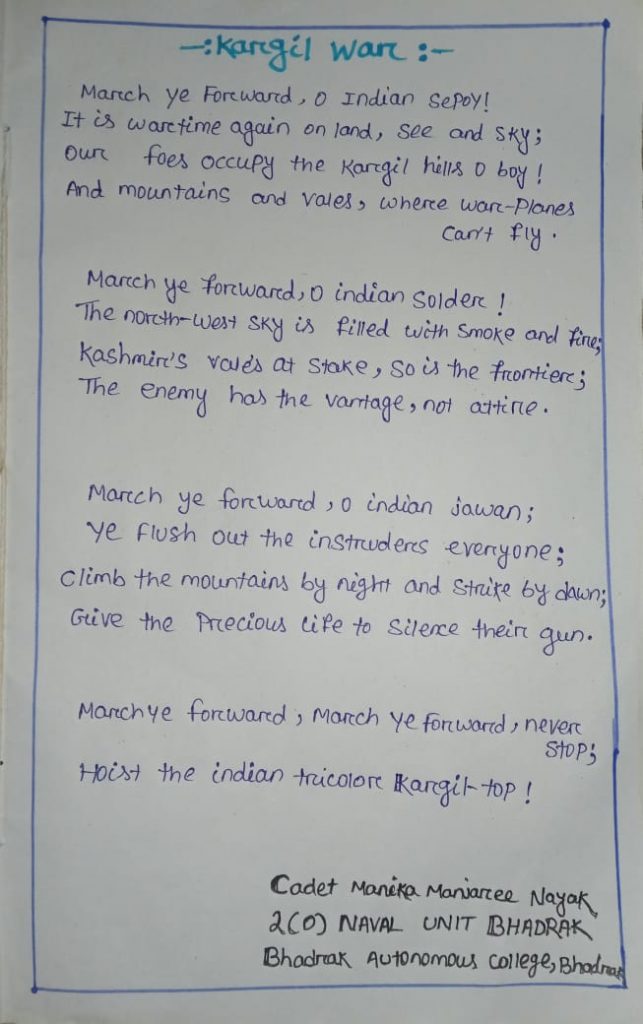 -: Kargil War :-
March ye Forward, O Indian Sepoy!
It is wartime again on land, See and Sky;
Our foes occupy the Kargil hills O boy!
And mountains and vales, where war-Planes
Can't fly.
March ye forward, O indian Solder!
The north-West Sky is filled with Smoke and fire;
Kashmir's vales at Stake, So is the frontier;
The enemy has the vantage, not attire.
March ye forward, O indian jawan;
Ye flush out the instruders everyone;
Climb the mountains by night and Strike by dawn;
Give the Precious life to Silence their gun.
March ye forward, March ye forward, never
Stop;
Hoist the indian tricolor Kargil-top!
Cadet Manika Manjaree Nayak
2(O) NAVAL UNIT BHADRAK
Bhadrak Autonomous College, Bhadrak